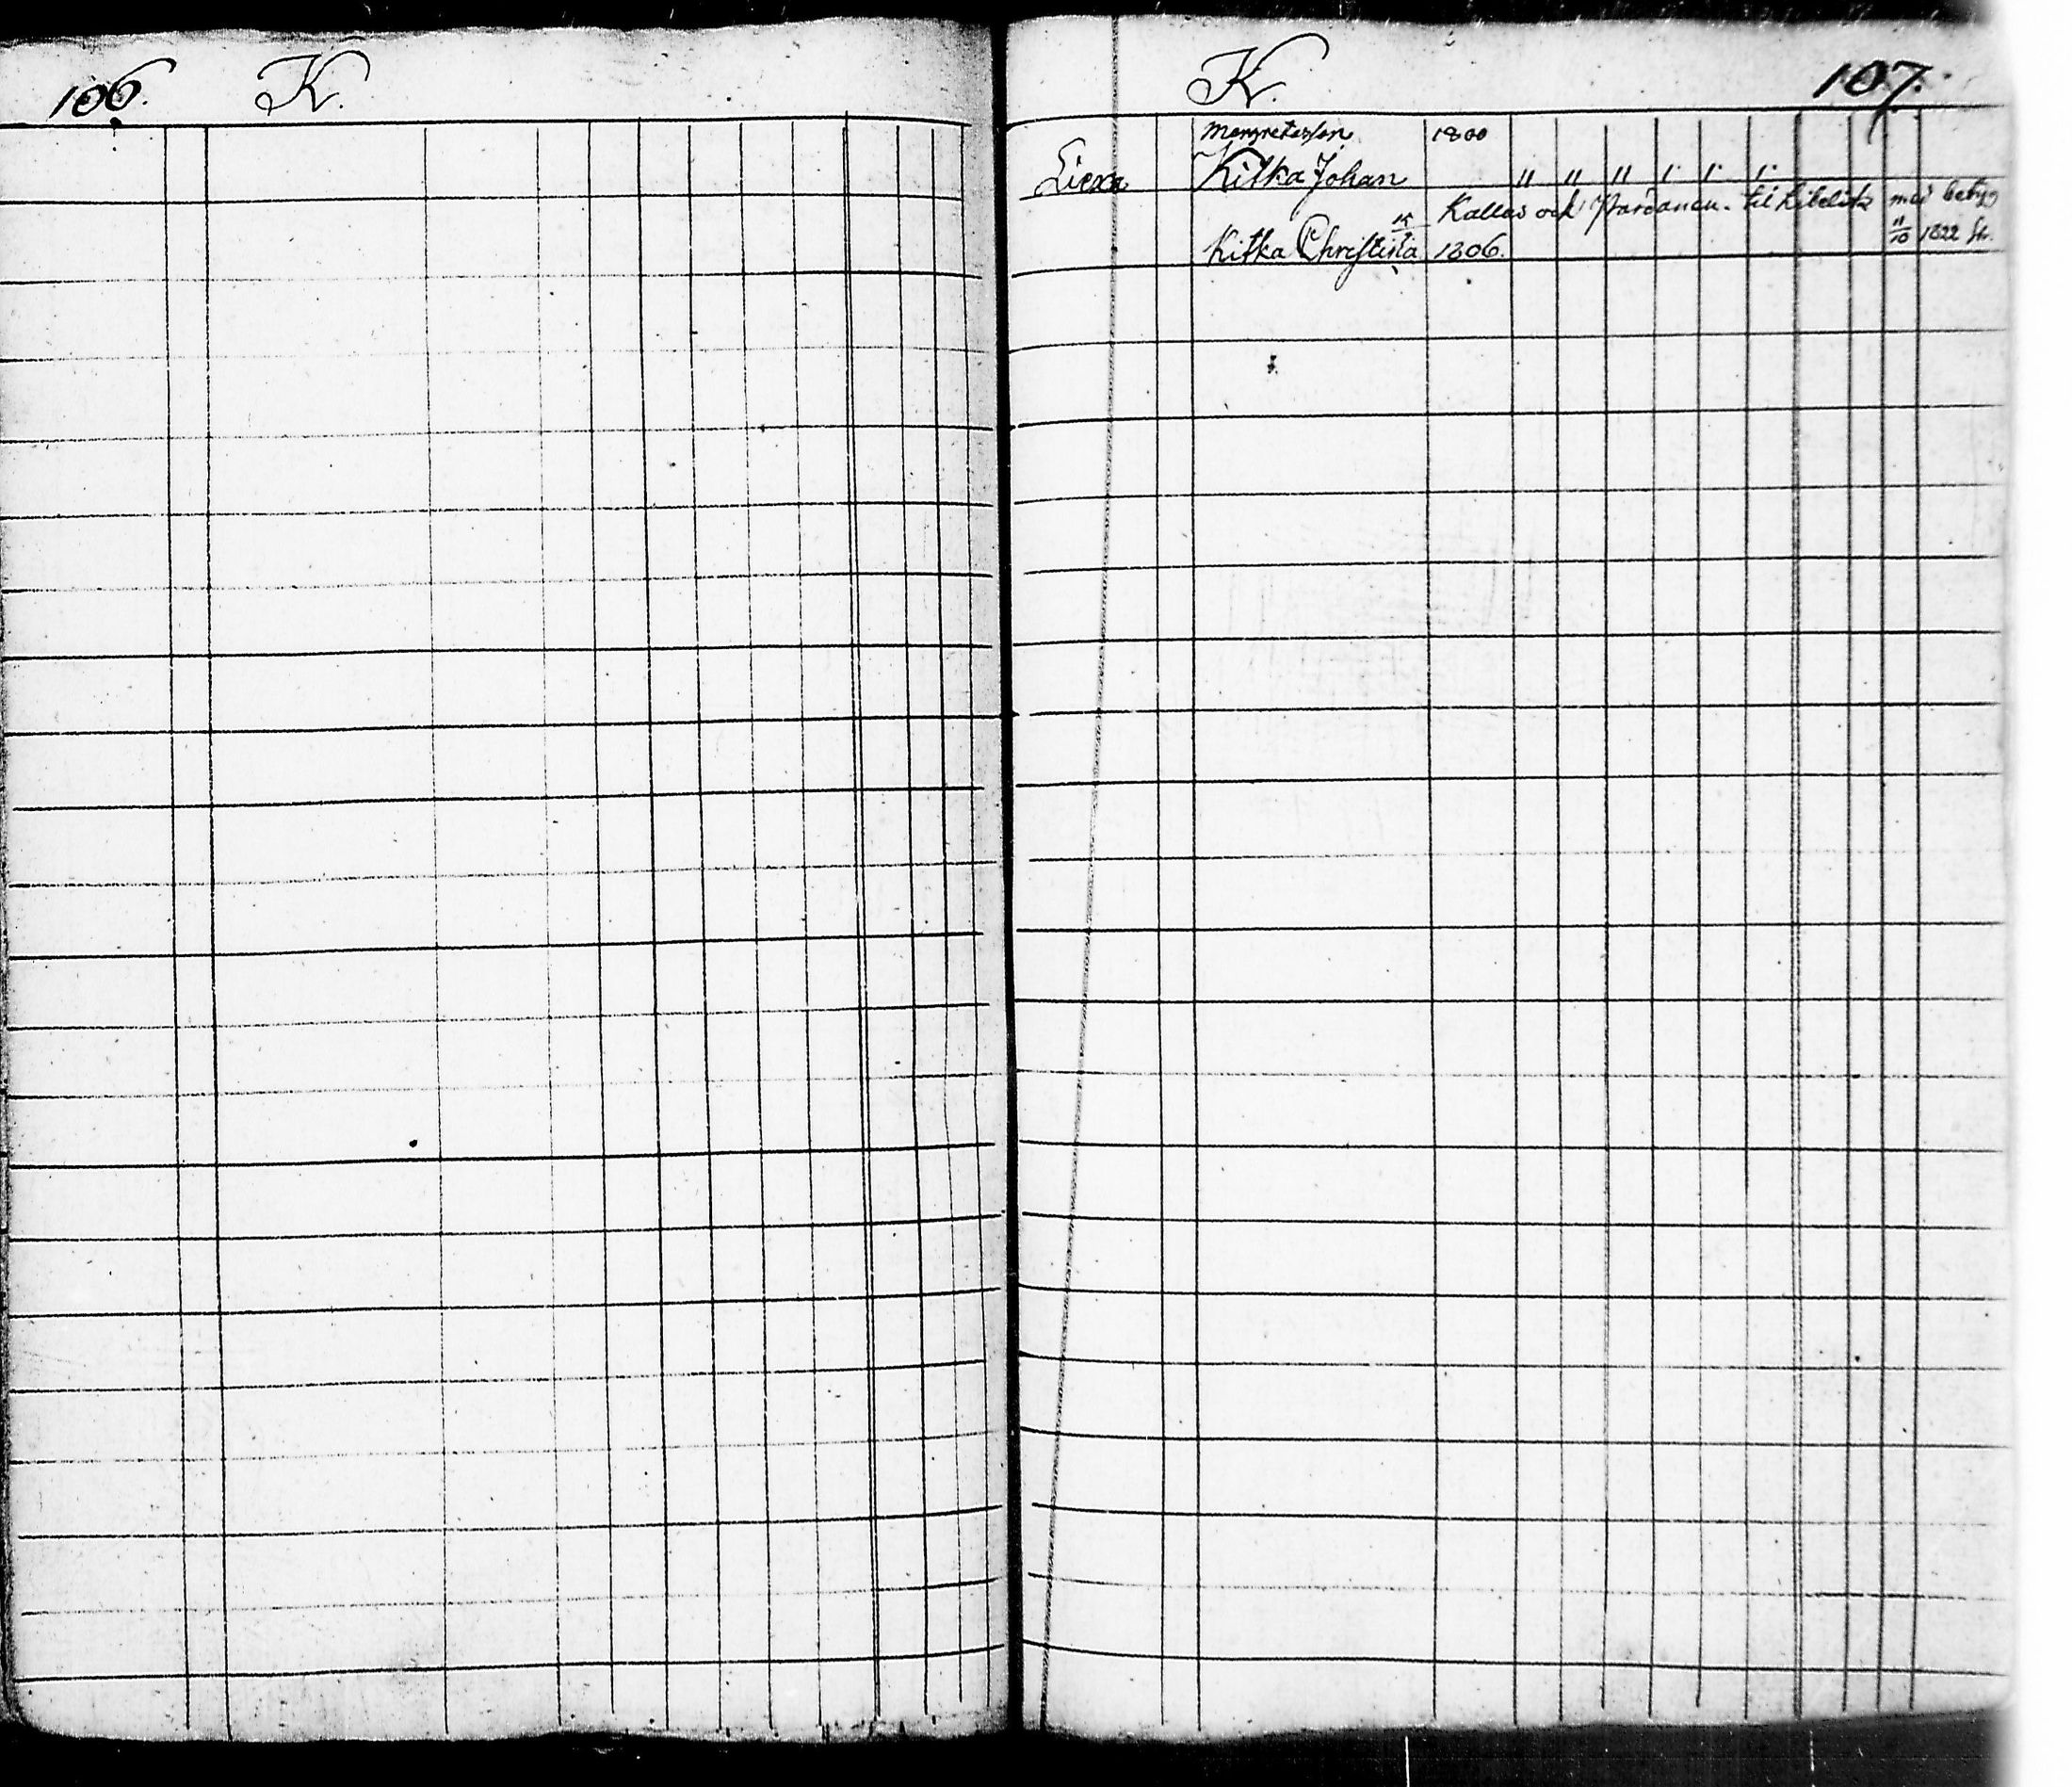 106. K.
K. 107.
Margretasson 1800
Liexa Kitka Johan " " " " " "
Kallas och Pardanen. til Libelitz med betyg
Kitka Christina 15/12 1806. 11/10 1822